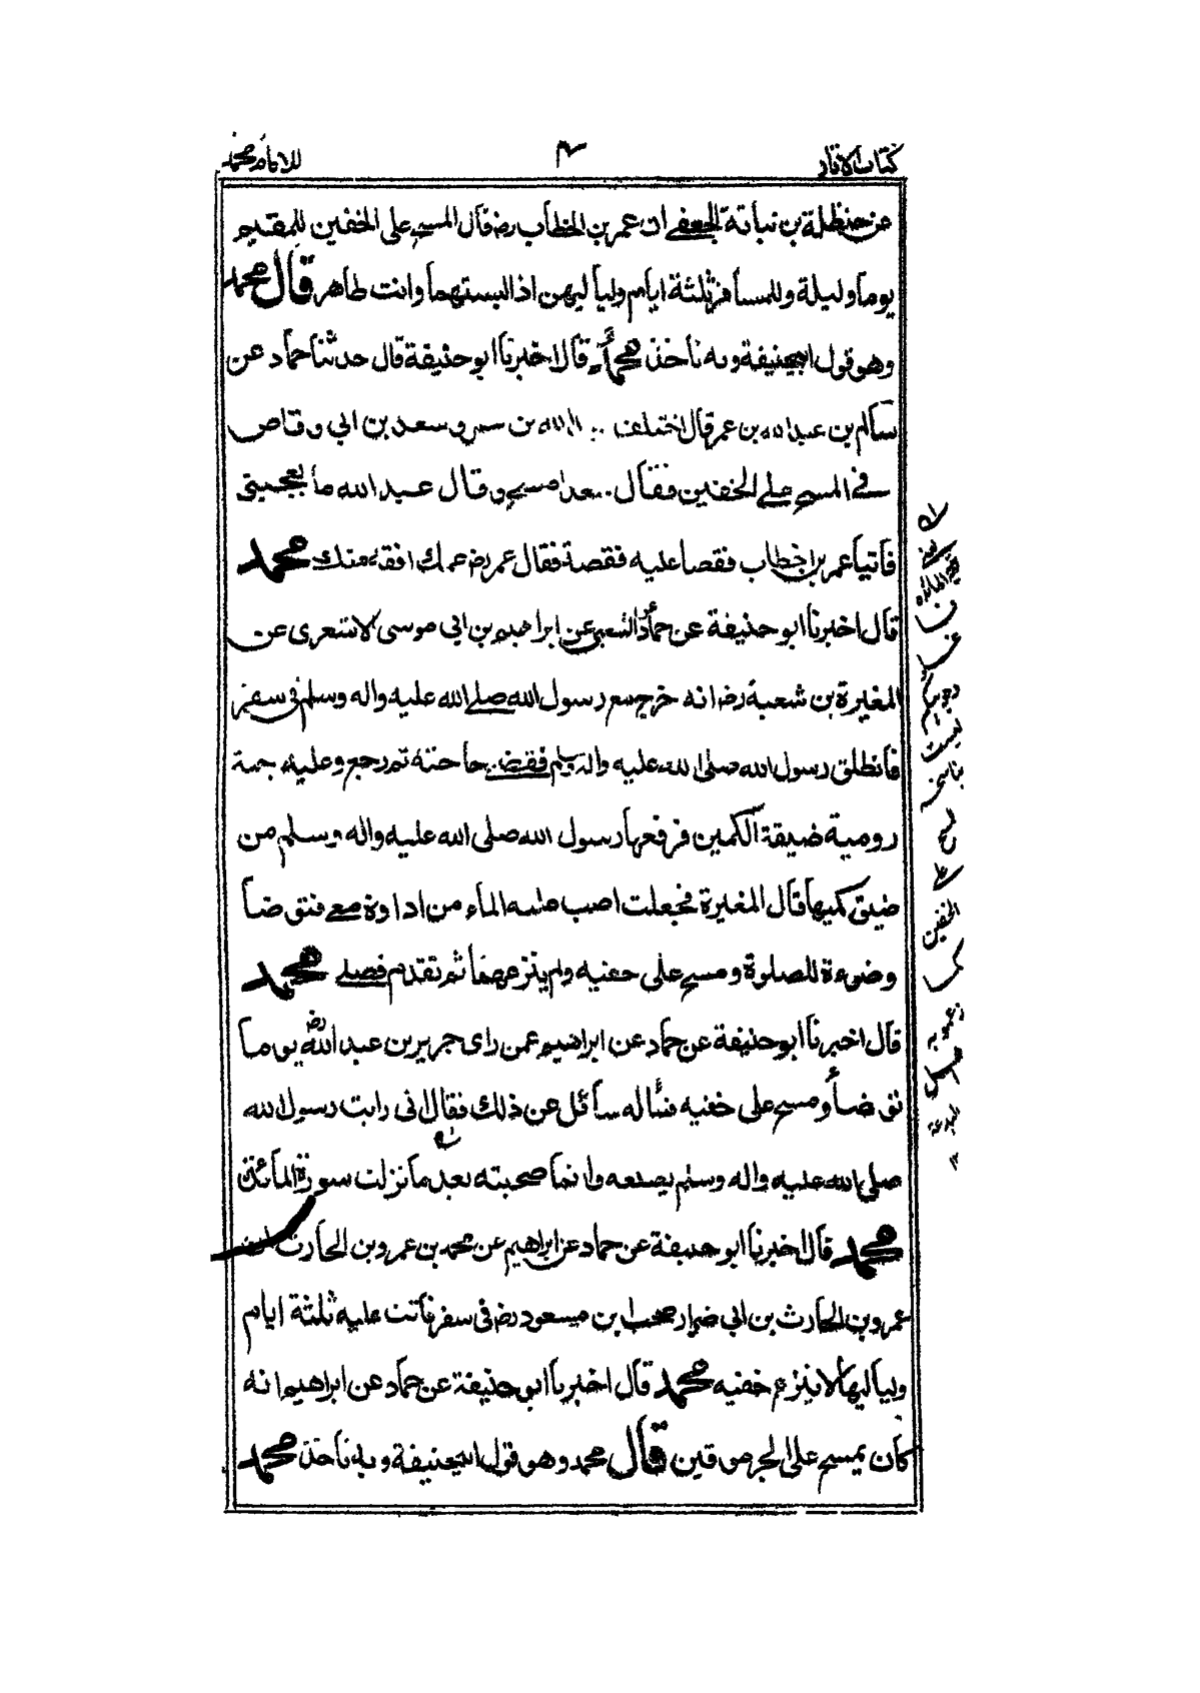 كتاب الاثار
للامام محمد
عن حنظلة بن نباتة الجعفي ان عمر بن الخطاب رض قال المسح على الخفين للمقيم
يوما وليلة وللمسافر ثلثة ايام ولياليهن اذا لبستهما وانت طاهر قال محمد
وهو قول ابيحنيفة وبه ناخذ محمد قال اخبرنا ابو حنيفة قال حدثنا حماد عن
سالم بن عبد الله بن عمر قال اختلف الله بن عمر وسعد بن ابي وقاص
في المسح على الخفين فقال سعد امسح وقال عبد الله ما يعجبني
فاتيا عمر بن خطاب فقصا عليه فقصة فقال عمر رض عمك افقه منك محمد
قال اخبرنا ابو حنيفة عن حماد عن الشعبي عن ابراهيم بن ابي موسى الاشعري عن
المغيرة بن شعبة رض انه خرج مع رسول الله صلى الله عليه واله وسلم في سفر
فانطلق رسول الله صلى الله عليه واله وسلم فقضى حاجته ثم رجع وعليه جبة
رومية ضيقة الكمين فرفعها رسول الله صلى الله عليه واله وسلم من
ضيق كميها قال المغيرة فجعلت اصب عليه الماء من اداوة معي فتوضا
وضوءه للصلوة ومسح على خفيه ولم ينزعهما ثم تقدم فصلى محمد
قال اخبرنا ابو حنيفة عن حماد عن ابراهيم عمن راى جرير بن عبد الله رض يوما
توضا ومسح على خفيه فساله سائل عن ذلك فقال اني رايت رسول الله
صلى الله عليه واله وسلم يصنعه وانما صحبته بعد ما نزلت سورة المائدة
محمد قال اخبرنا ابو حنيفة عن حماد عن ابراهيم عن محمد بن عمرو بن الحارث ان
عمرو بن الحارث بن ابي ضرار صحب ابن مسعود رض في سفر فاتت عليه ثلثة ايام
ولياليها لا ينزع خفيه محمد قال اخبرنا ابو حنيفة عن حماد عن ابراهيم انه
كان يمسح على الجرموقين قال محمد وهو قول ابيحنيفة وبه ناخذ محمد